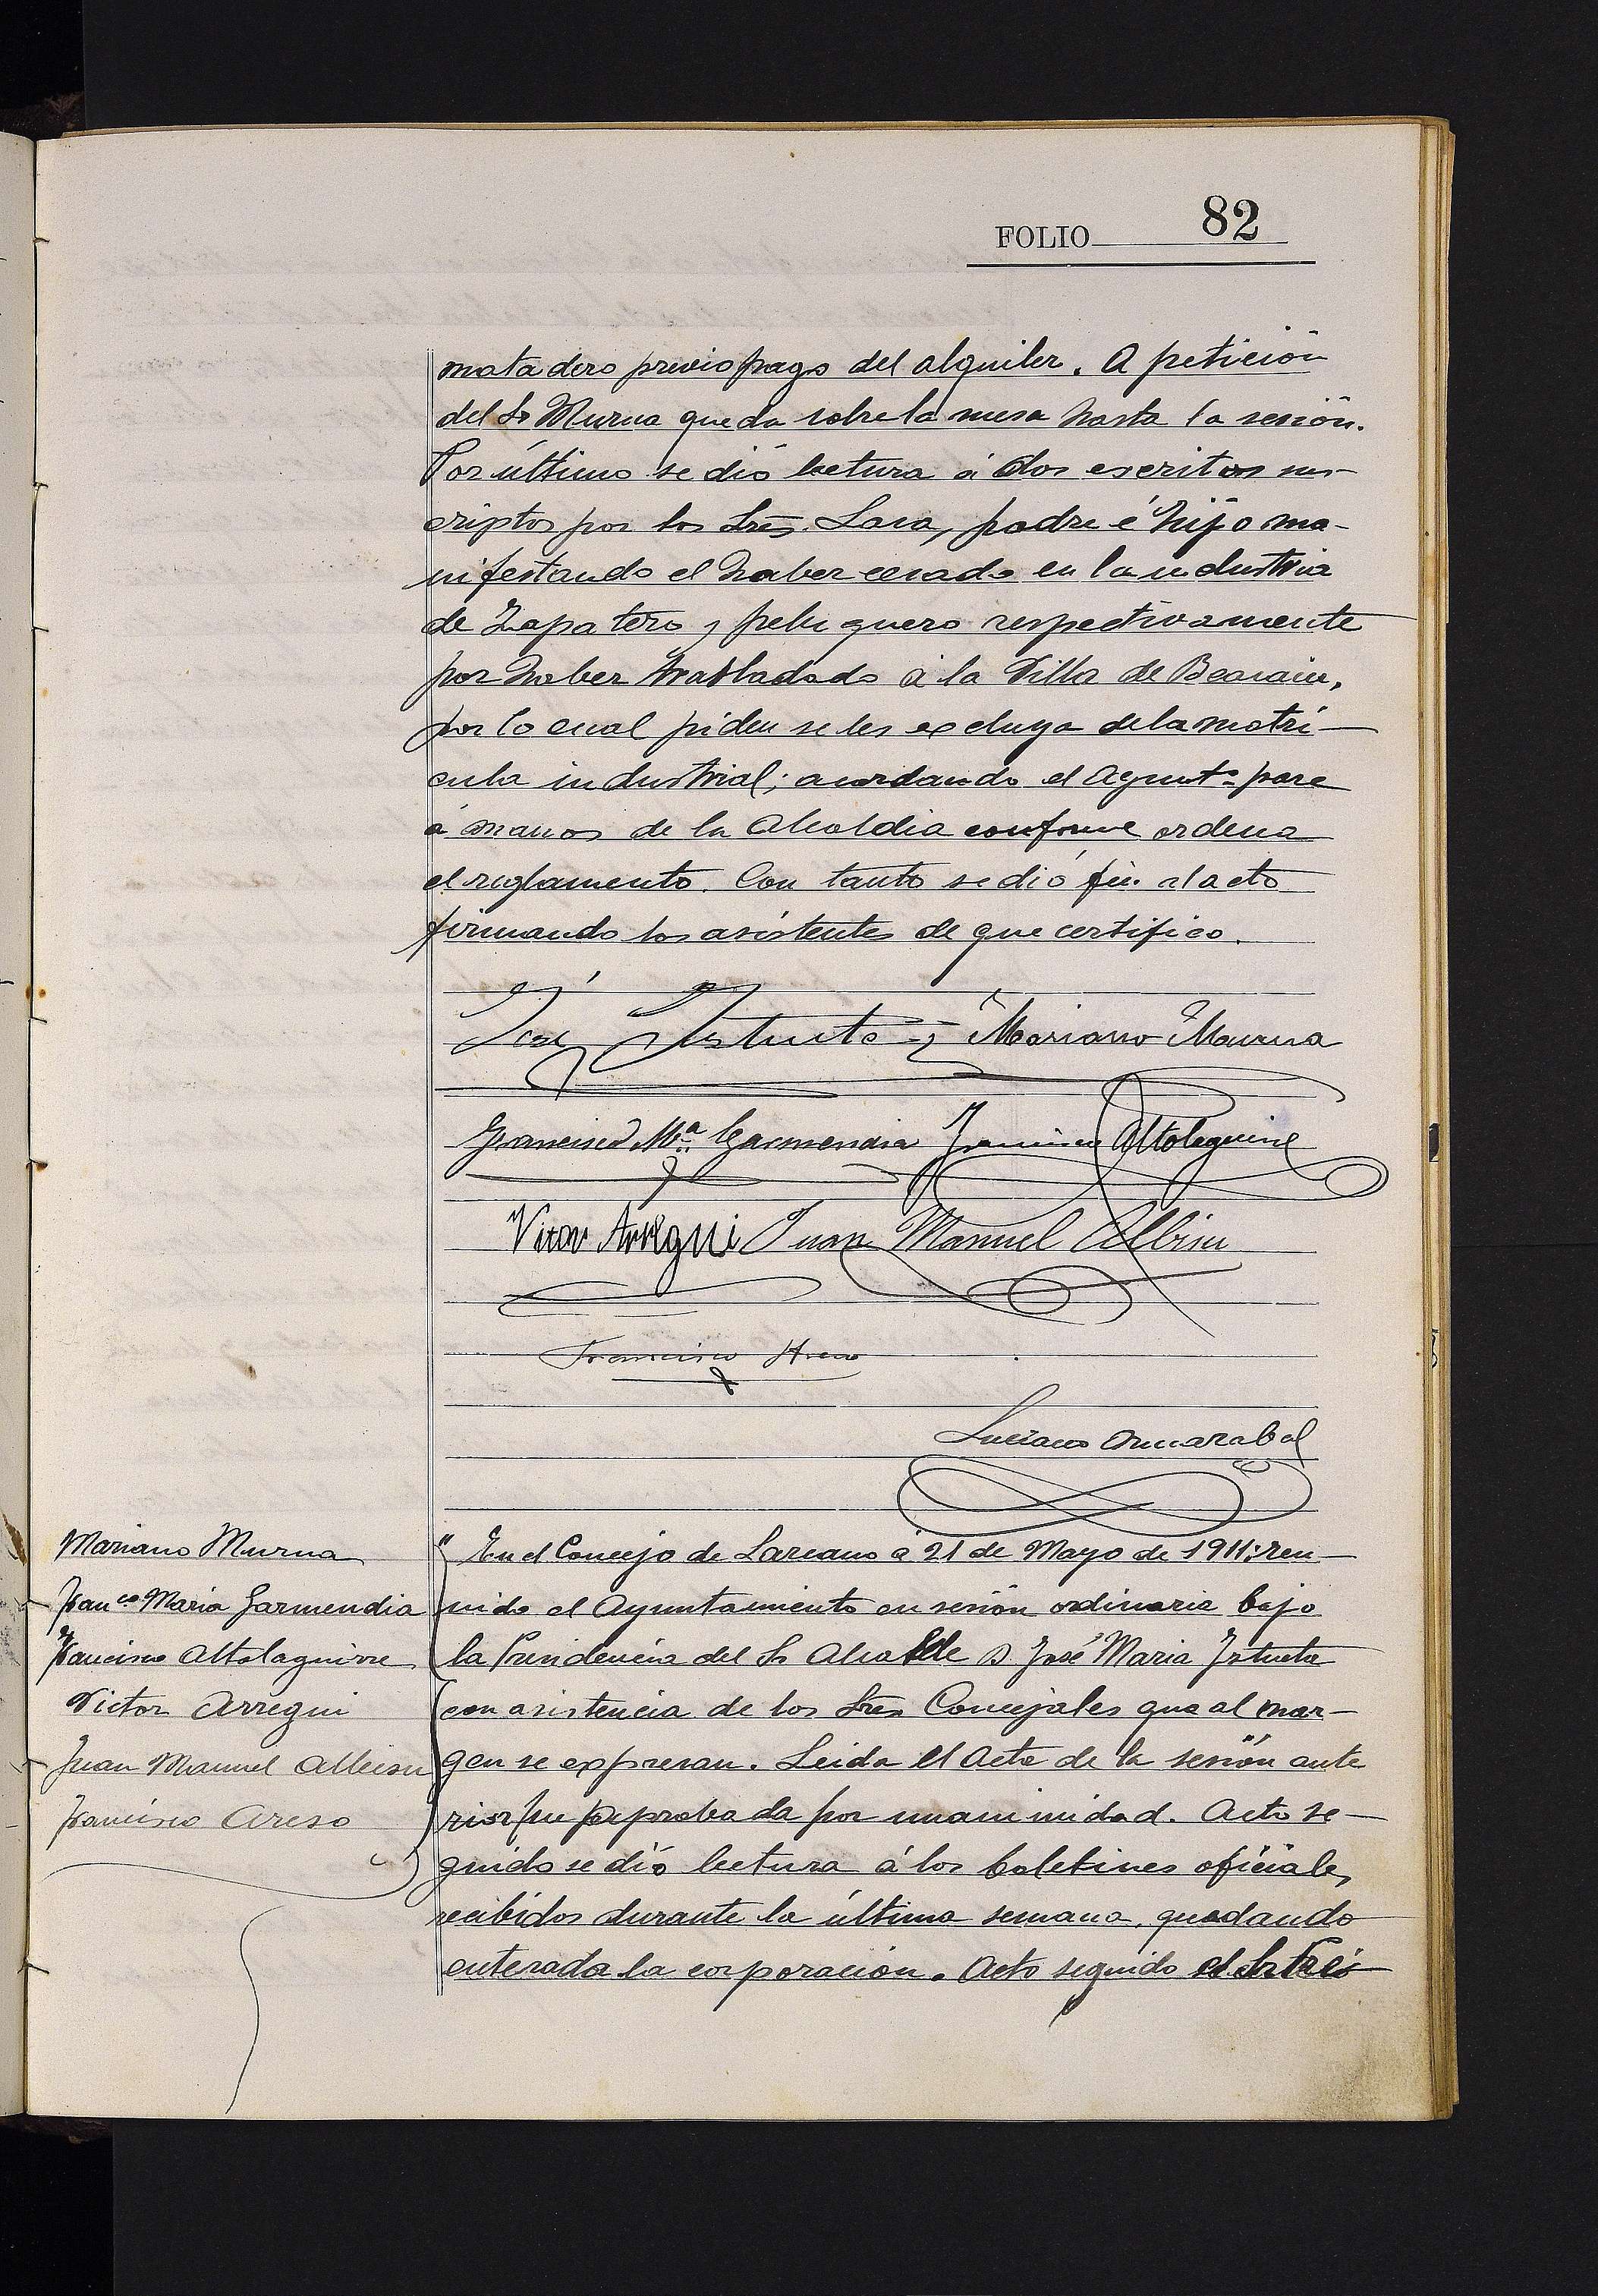 FOLIO 82
matadero previo pago del alquiler. A petición
del Sr Murua queda sobre la mesa hasta la sesión.
Por último se dió lectura á dos escritos sus-
criptos por los Sres. Lasa, padre é hijo ma-
nifestando el haber cesado en la industria
de Zapatero y peluquero respectivamente
por haber trasladado á la Villa de Beasain,
por lo cual piden se les excluya de la matri-
cula industrial; acordando el Ayuntº pase
á manos de la Alcaldia conforme ordena
el reglamento. Con tanto se dió fin al acto
firmando los asistentes de que certifico.
José Iztueta Mariano Murua
Francisco Mª Garmendia Francisco Altolaguirre
Victor Arregui Juan Manuel Albisu
Francisco Areso
Luciano Amarabal
Mariano Murua
Franco Maria Garmendia
Francisco Altolaguirre
Victor Arregui
Juan Manuel Albisu
Francisco Areso
" En el Concejo de Lazcano á 21 de Mayo de 1911; reu-
nido el Ayuntamiento en sesión ordinaria bajo
la Presidencia del Sr Alcalde D. José Maria Iztueta
con asistencia de los Sres Concejales que al mar-
gen se expresan. Leida el Acta de la sesión ante
rior fue aprobada por unanimidad. Acto se-
guido se dió lectura á los boletines oficiales
recibidos durante la última semana, quedando
enterada la corporación. Acto seguido el Sr